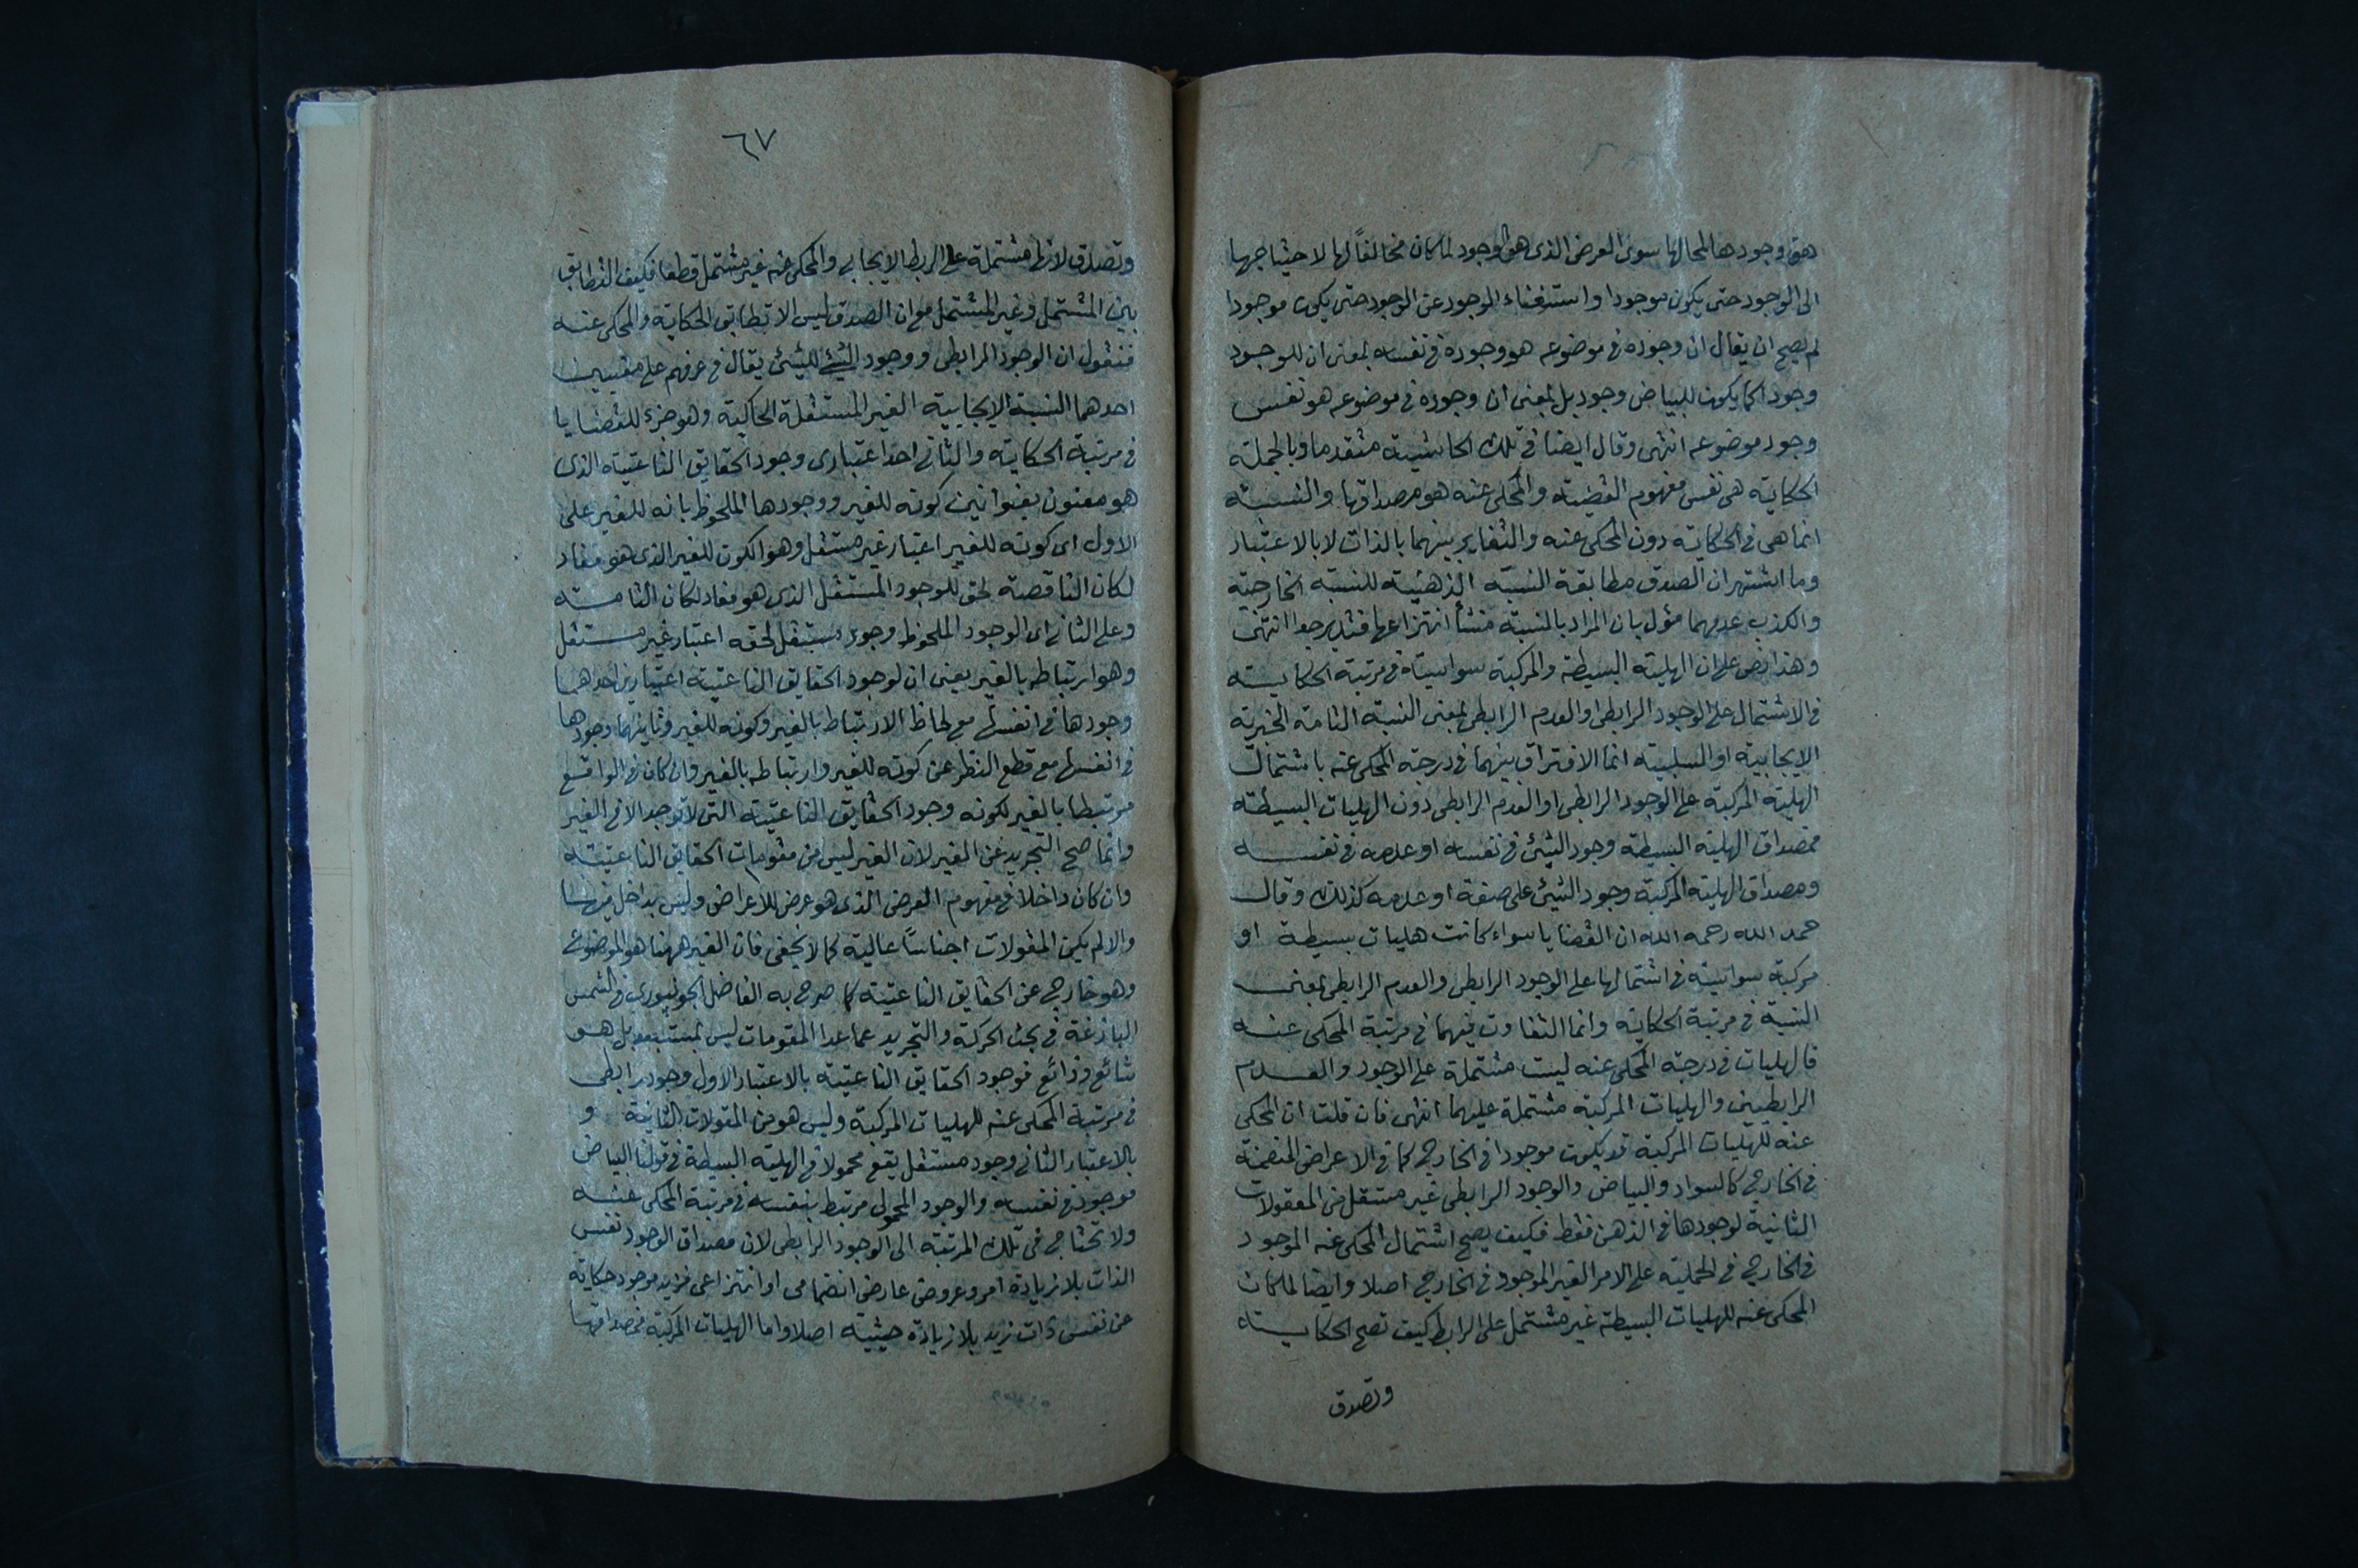 هو وجودها لمحالها سوى العرض الذى هو الوجود لما كان مخالفاً لها لاحتياجها
الى الوجود حتى يكون موجودا واستغناء الوجود عن الوجود حتى يكون موجودا
لم يصح ان يقال ان وجوده فى موضوعه هو وجوده فى نفسه بمعنى ان للوجود
وجودا كما يكون للبياض وجود بل بمعنى ان وجوده فى موضوعه هو نفس
وجود موضوعه انتهى وقال ايضا فى تلك الحاشية متقدما وبالجملة
الحكاية هى نفس مفهوم القضية والمحكى عنه هو مصداقها والنسبة
انما هى فى الحكاية دون المحكى عنه والتغاير بينهما بالذات لا بالاعتبار
وما اشتهر ان الصدق مطابقة النسبة الذهنية للنسبة الخارجية
والكذب عدمهما مؤل بان المراد بالنسبة منشأ انتزاعها فتدبر جدا انتهى
وهذا نص على ان الهلية البسيطة والمركبة سواسية فى مرتبة الحكاية
فى الاشتمال على الوجود الرابطى او العدم الرابطى بمعنى النسبة التامة الخبرية
الايجابية او السلبية انما الافتراق بينهما فى درجة المحكى عنه باشتمال
الهلية المركبة على الوجود الرابطى او العدم الرابطى دون الهليات البسيطة
فمصداق الهلية البسيطة وجود الشئ فى نفسه او عدمه فى نفسه
ومصداق الهلية المركبة وجود الشئ على صفة او عدمه كذلك وقال
حمد الله رحمه الله ان القضايا سواء كانت هليات بسيطة او
مركبة سواسية فى اشتمالها على الوجود الرابطى والعدم الرابطى بمعنى
النسبة فى مرتبة الحكاية وانما التفاوت فيهما فى مرتبة المحكى عنه
فالهليات فى درجة المحكى عنه ليست مشتملة على الوجود والعدم
الرابطيين والهليات المركبة مشتملة عليهما انتهى فان قلت ان المحكى
عنه للهليات المركبة قد يكون موجودا فى الخارج كما فى الاعراض المنضمة
فى الخارج كالسواد والبياض والوجود الرابطى غير مستقل من المعقولات
الثانية لوجودها فى الذهن فقط فكيف يصح اشتمال المحكى عنه الموجود
فى الخارج فى الحملية على الامر الغير الموجود فى الخارج اصلا وايضا لما كان
المحكى عنه للهليات البسيطة غير مشتمل على الرابط كيف تصح الحكاية
وتصدق
٦٧
وتصدق لانها مشتملة على الربط الايجابى والمحكى عنه غير مشتمل قطعا فكيف التطابق
بين المشتمل وغير المشتمل مع ان الصدق ليس الا تطابق الحكاية والمحكى عنه
فنقول ان الوجود الرابطى ووجود الشئ للشئ يقال فى عرفهم على معنيين
احدهما النسبة الايجابية الغير المستقلة الحاكية وهو جزء للقضايا
فى مرتبة الحكاية والثانى احد اعتبارى وجود الحقايق الناعتية الذى
هو معنون بعنوانين كونه للغير ووجودها الملحوظ بانه للغير على
الاول اى كونه للغير اعتبار غير مستقل وهو الكون للغير الذى هو مفاد
لكان الناقصة لحق للوجود المستقل الذى هو مفاد لكان التامة
وعلى الثانى اى الوجود الملحوظ وجود مستقل لحقه اعتبار غير مستقل
وهو ارتباطه بالغير يعنى ان لوجود الحقايق الناعتية اعتبارين احدهما
وجودها فى انفسها مع لحاظ الارتباط بالغير وكونه للغير وثانيهما وجودها
فى انفسها مع قطع النظر عن كونه للغير وارتباطه بالغير وان كان فى الواقع
مرتبطا بالغير لكونه وجود الحقايق الناعتية التى لا توجد الا فى الغير
وانما صح التجريد عن الغير لان الغير ليس من مقومات الحقايق الناعتية
وان كان داخلا فى مفهوم العرض الذى هو عرض للاعراض وليس بداخل فيها
والا لم يكن المقولات اجناسًا عالية كما لا يخفى فان الغير ههنا هو الموضوع
وهو خارج عن الحقايق الناعتية كما صرح به الفاضل الجونپورى فى الشمس
البازغة فى بحث الحركة والتجريد عما عدا المقومات ليس بمستبعد بل هو
شائع وذائع فوجود الحقايق الناعتية بالاعتبار الاول وجود رابطى
فى مرتبة المحكى عنه للهليات المركبة وليس هو من المقولات الثانية و
بالاعتبار الثانى وجود مستقل يقع محمولا فى الهلية البسيطة فى قولنا البياض
موجود فى نفسه والوجود المحمولى مرتبط بنفسه فى مرتبة المحكى عنه
ولا تحتاج فى تلك المرتبة الى الوجود الرابطى لان مصداق الوجود نفس
الذات بلا زيادة امر وعروض عارض انضمامى او انتزاعى فزيد موجود حكاية
عن نفس ذات زيد بلا زيادة حيثية اصلا واما الهليات المركبة فمصداقها